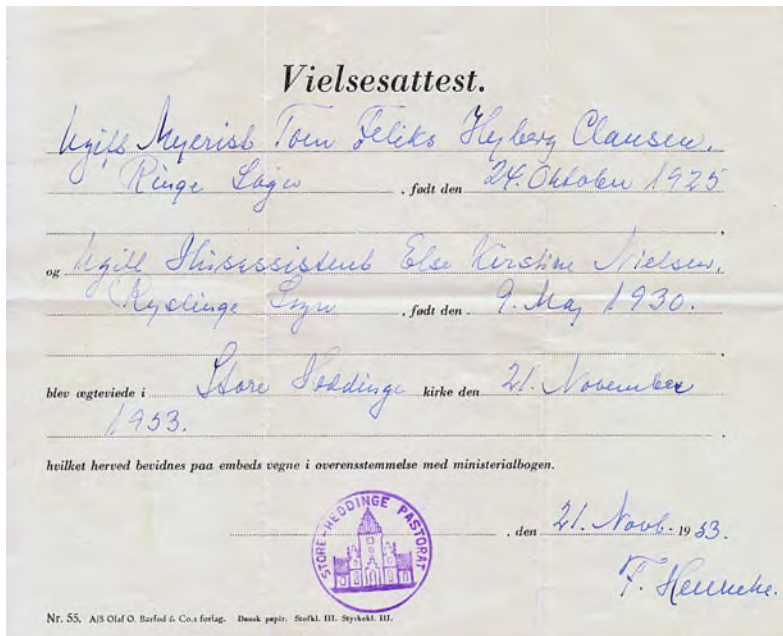 Vielsesattest.
Ugift Mejerist Tom Feliks Højberg Clausen.
Ringe Sogn , født den 24. Oktober 1925
,
og Ugift Husassistent Else Kirstine Nielsen,
Ryslinge Sogn , født den 9. Maj 1930.
,
blev ægteviede i Store Heddinge kirke den 21. November
1953. .
hvilket herved bevidnes paa embeds vegne i overensstemmelse med ministerialbogen.
STORE-HEDDINGE PASTORAT
, den 21. Novb. 1953.
F.
Nr. 55. A/S Olaf O. Barfod & Co.s forlag. Dansk papir. Stofkl. III. Styrkekl. III.